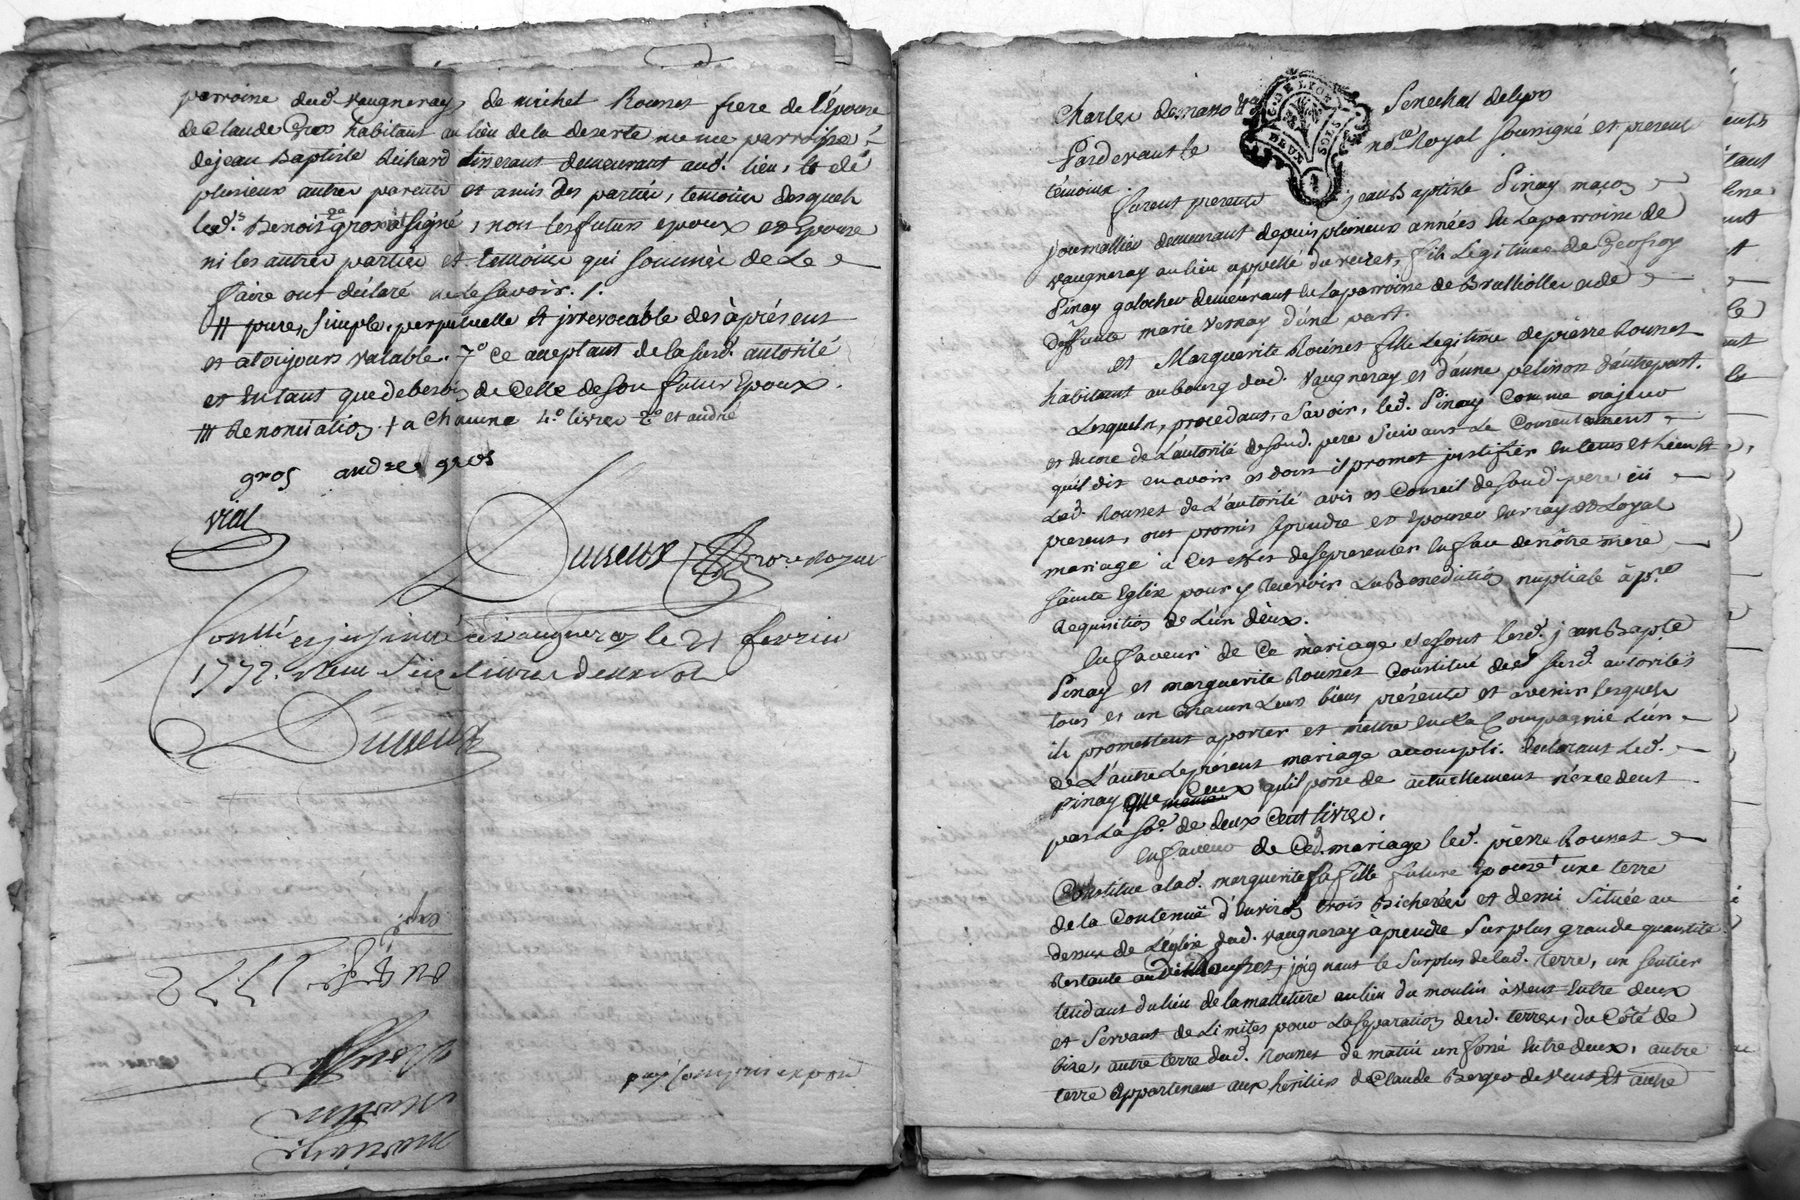 parroine dud. Vaugneray, de michel Rounet frere de l'Epouse
de Claude Gros habitant au lieu de la deserte meme parroisse
de jean Baptiste Richard tisserant demeurant aud. lieu, et de
plusieurs autres parents et amis des parties, temoins desquels
led. Benoit gros a signé, non les futurs epoux et Epouse
ni les autres parties et temoins qui sommés de Le
faire ont déclaré ne Le savoir. /.
# pure, simple, perpetuelle et irrevocable dès à présent
et a toujours valable. 7° Ce acceptant de la susd. autorité
et en tant que de besoin de Celle de son futur Epoux.
renonciation + a Chacune 4° livres 2° et andré
gros andre gros
vial
Duvieux nore royal
à vaugneray le 21 fevrier
1772. Reçu livres
Duvieux
exp.
1772
mariage
Charles demasso Senechal de lyon
G. DE LYON
DEUX SOLS
Pardevant le nore. Royal soussigné et presents
témoins.
furent presents jean Baptiste Pinay maçon
journallier demeurant depuis plusieurs années en La parroine de
Vaugneray au lieu appellé du recret, fils Légitime de Geofroy
Pinay galocher demeurant en La parroine de Brulliolles et de
deffunte marie Vernay d'une part.
et Marguerite Rounet fille Legitime de pierre Rounet
habitant au bourg dud. Vaugneray et d'anne pelisson d'autre part.
Lesquels, procedant, Savoir, led. Pinay Comme majeur
et encore de L'autorité de sond. pere suivant Le Consentement
quil dit en avoir et dont il promet justifier en tems et Lieu et
Lad. Rounet de L'autorité avis et Conseil de sond. pere ici
present, ont promis se prendre et Epouser en vray et Loyal
mariage à Ces effets de se presenter en face de nôtre mere
Sainte Eglise pour y Recevoir La Benediction nuptiale à pre.
Requisition de L'un d'eux.
En faveur de Ce mariage se sont lesd. jean Bapte
Pinay et marguerite Rounet Constitué desd. susd. autorités
tous et un chacun Leurs biens présents et avenir lesquels
ils promettent aporter et mettre en La Compagnie L'un
de L'autre Le présent mariage accompli. declarant Led.
Pinay que Ceux qu'il possede actuellement n'excedent
pas La se. de deux Cent livres.
En faveur de Ced. mariage led. pierre Rounet
Constitue a lad. marguerite sa fille future Epouse une terre
de la Contenuë d'environ trois Bicherées et demi située au
dessus de L'Eglise dud. Vaugneray à prendre sur plus grande quantité
Restante aud. Rounet, joignant le surplus de lad. terre, un sentier
tendant du lieu de la malletiere au lieu du moulin à vent Entre deux
et Servant de Limites pour La separation desd. terres, du Côté de
bize, autre terre dud. Rounet de matin un fossé Entre deux, autre
terre appartenant aux heritiers de Claude Berger de vent et autre